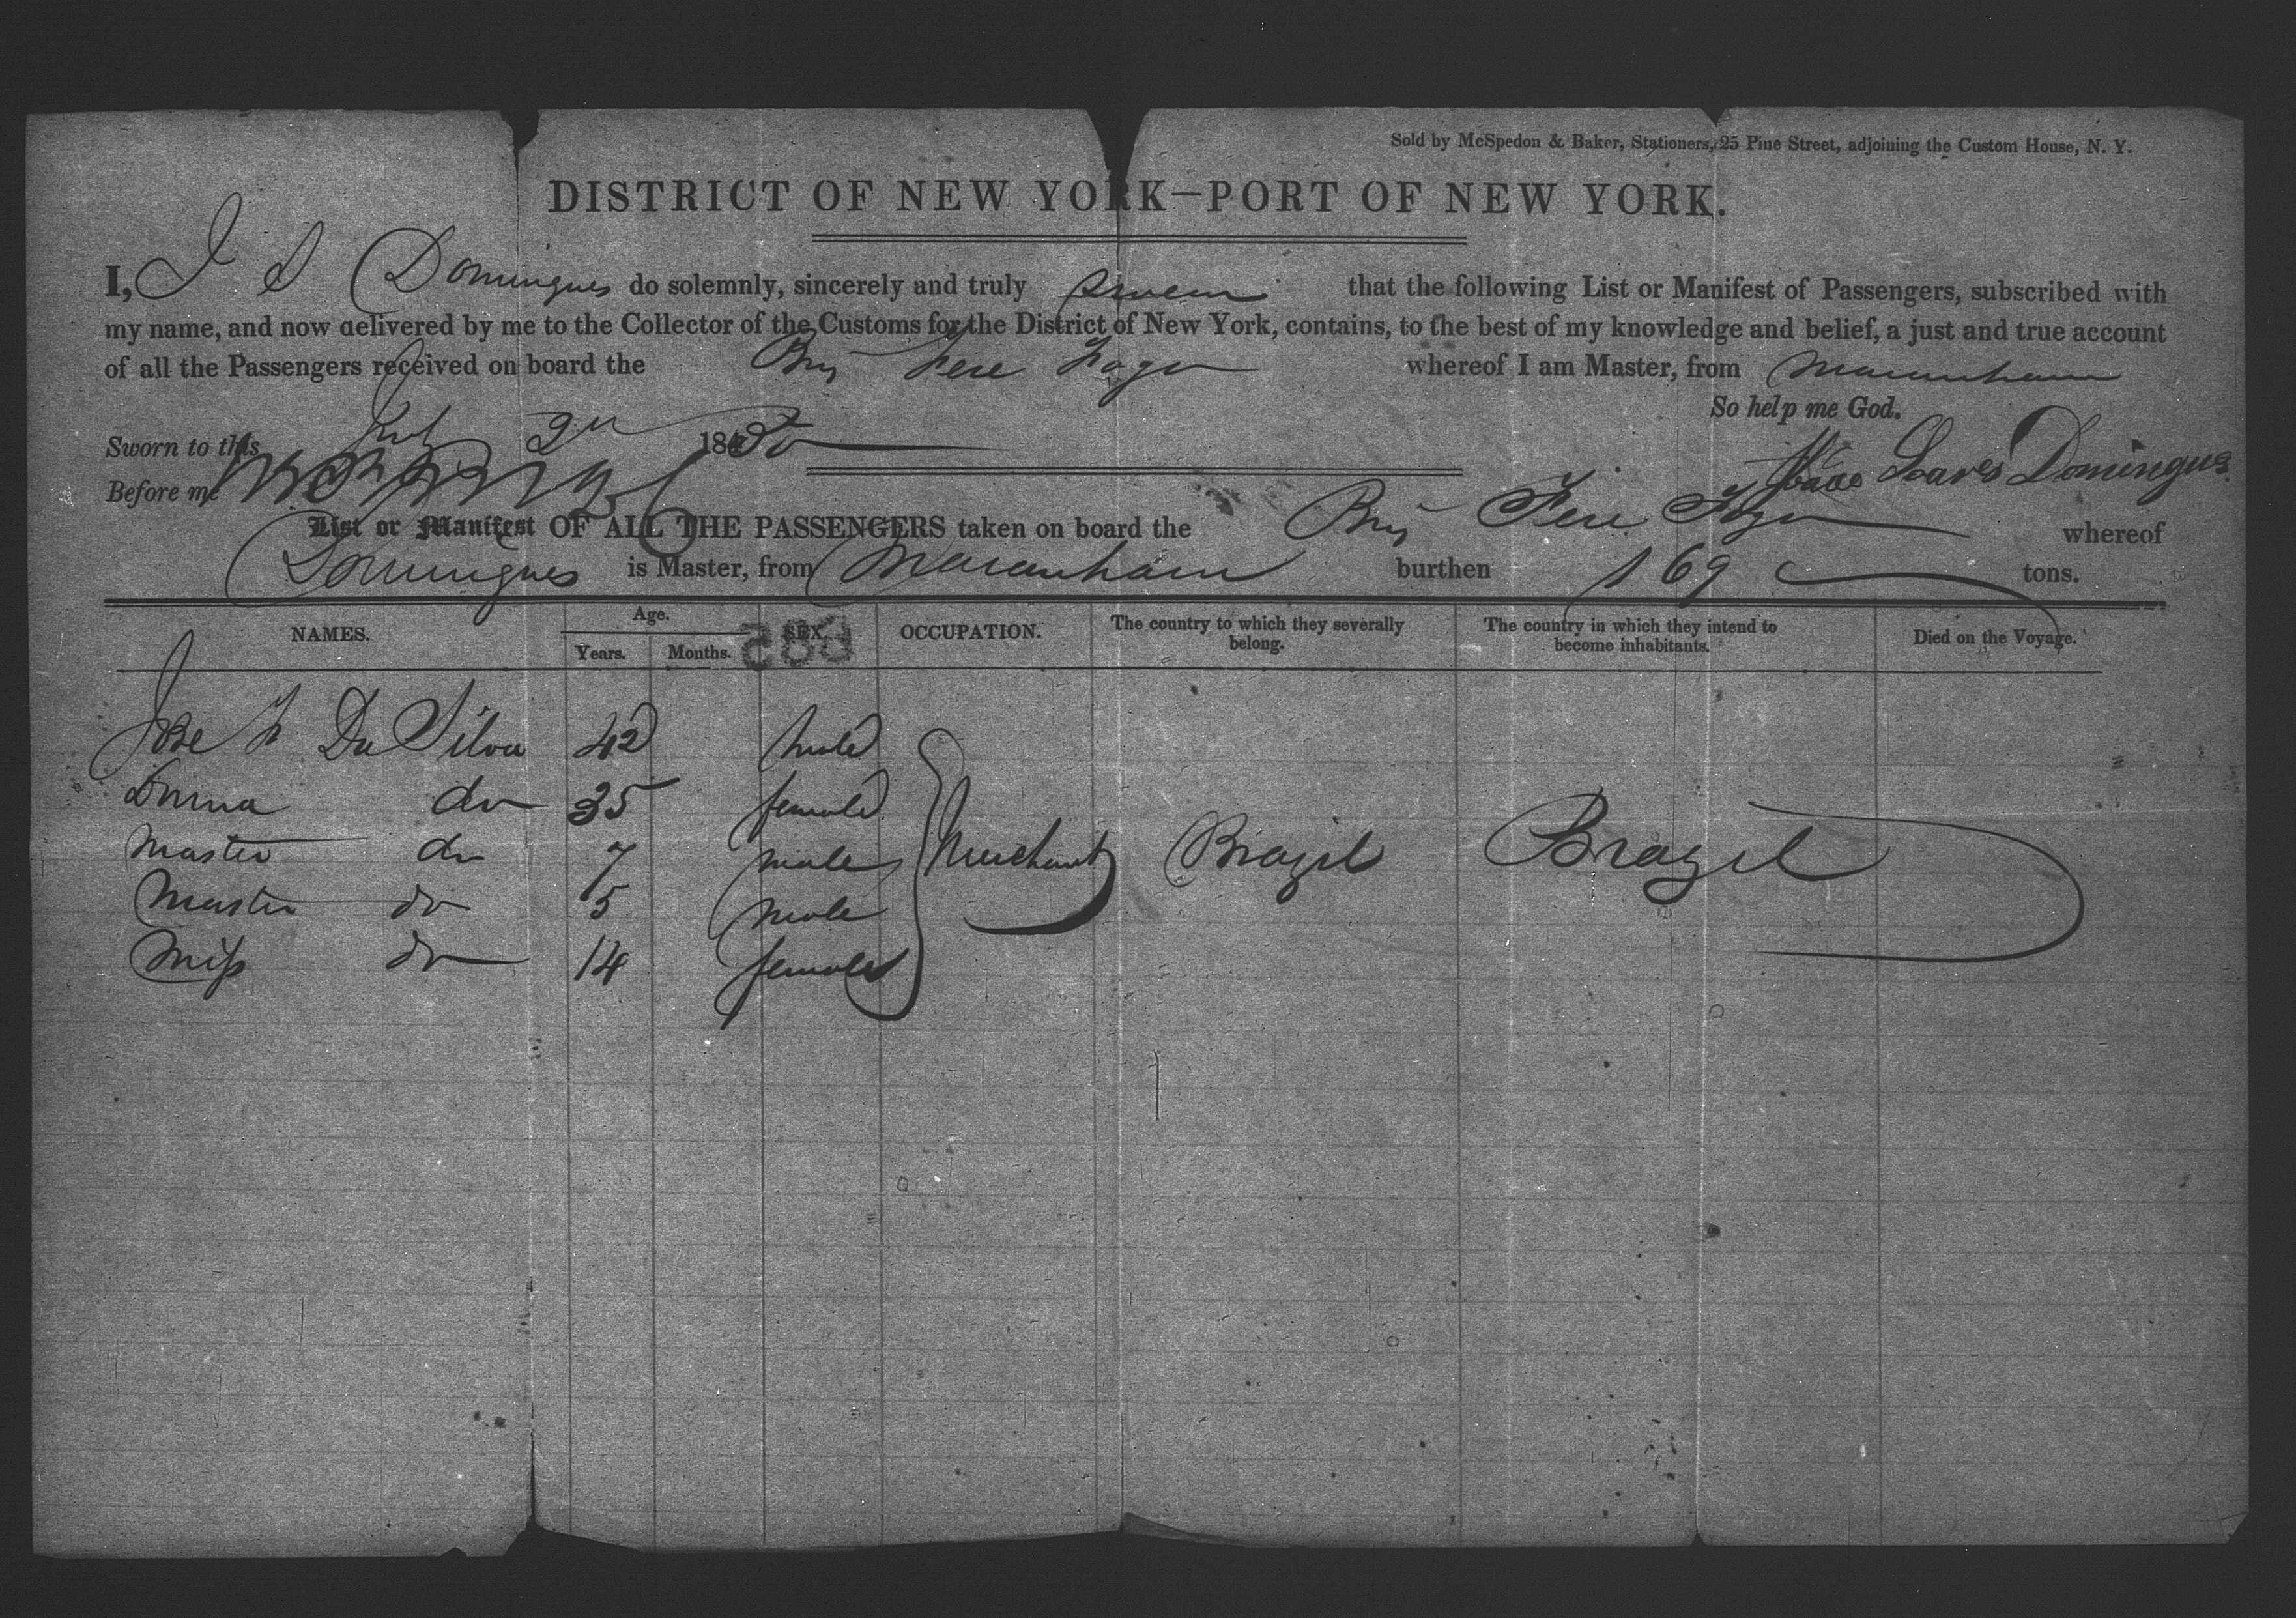 Sold by McSpedon & Baker, Stationers, 25 Pine Street, adjoining the Custom House, N. Y.
DISTRICT OF NEW YORK—PORT OF NEW YORK.
I, J S Domingues do solemnly, sincerely and truly swear that the following List or Manifest of Passengers, subscribed with
my name, and now delivered by me to the Collector of the Customs for the District of New York, contains, to the best of my knowledge and belief, a just and true account
of all the Passengers received on board the Brig whereof I am Master, from Maranham
So help me God.
Sworn to this July 2 1850
Soares Domingues
Before me
List or Manifest OF ALL THE PASSENGERS taken on board the Brig whereof
Domingues is Master, from Maranham burthen 169 tons.
NAMES. Age. Years. Months. SEX. OCCUPATION. The country to which they severally belong. The country in which they intend to become inhabitants. Died on the Voyage.
585
Jose F Da Silva 42 male
Donna do 35 female
Master do 7 male Merchant Brazil Brazil
Master do 5 male
Miss do 14 female